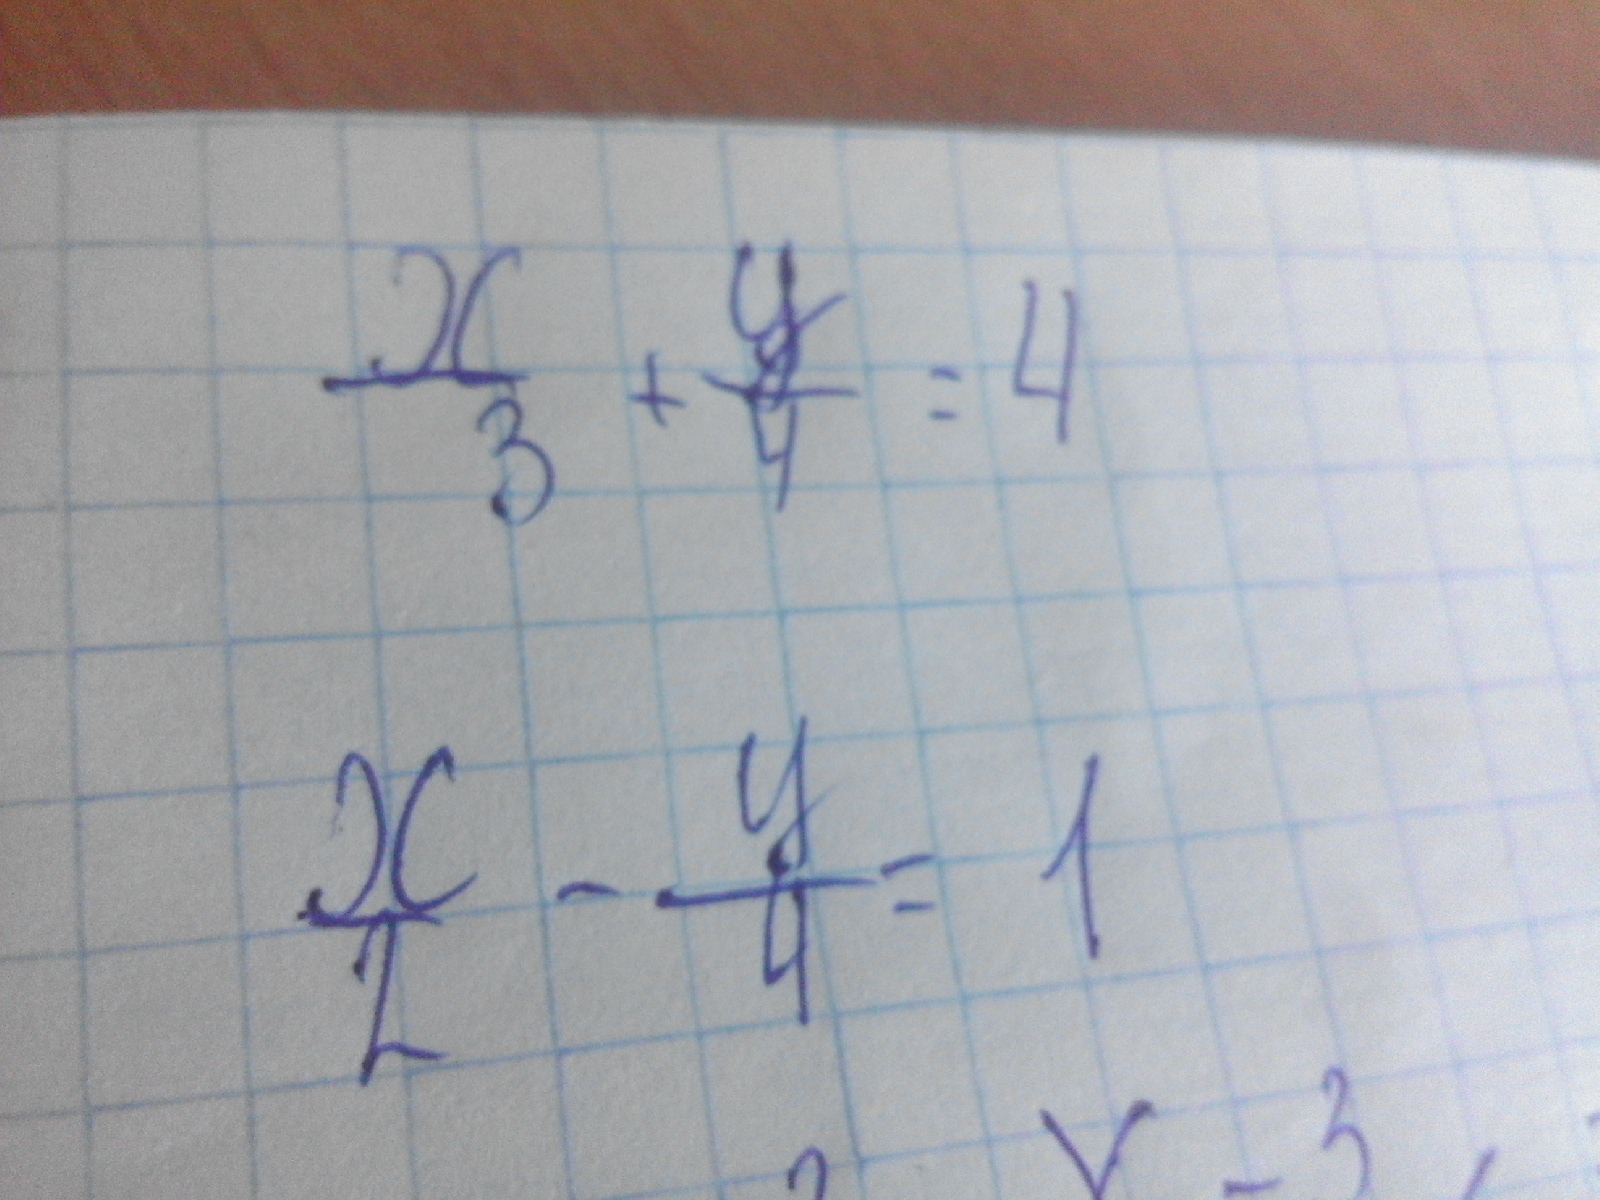 x/3 + y/4 = 4
x/2 - y/4 = 1